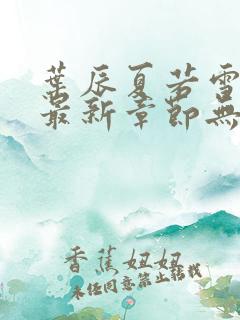 葉辰夏若雪
最新章節無
香蕉妞妞
未经同意禁止转载